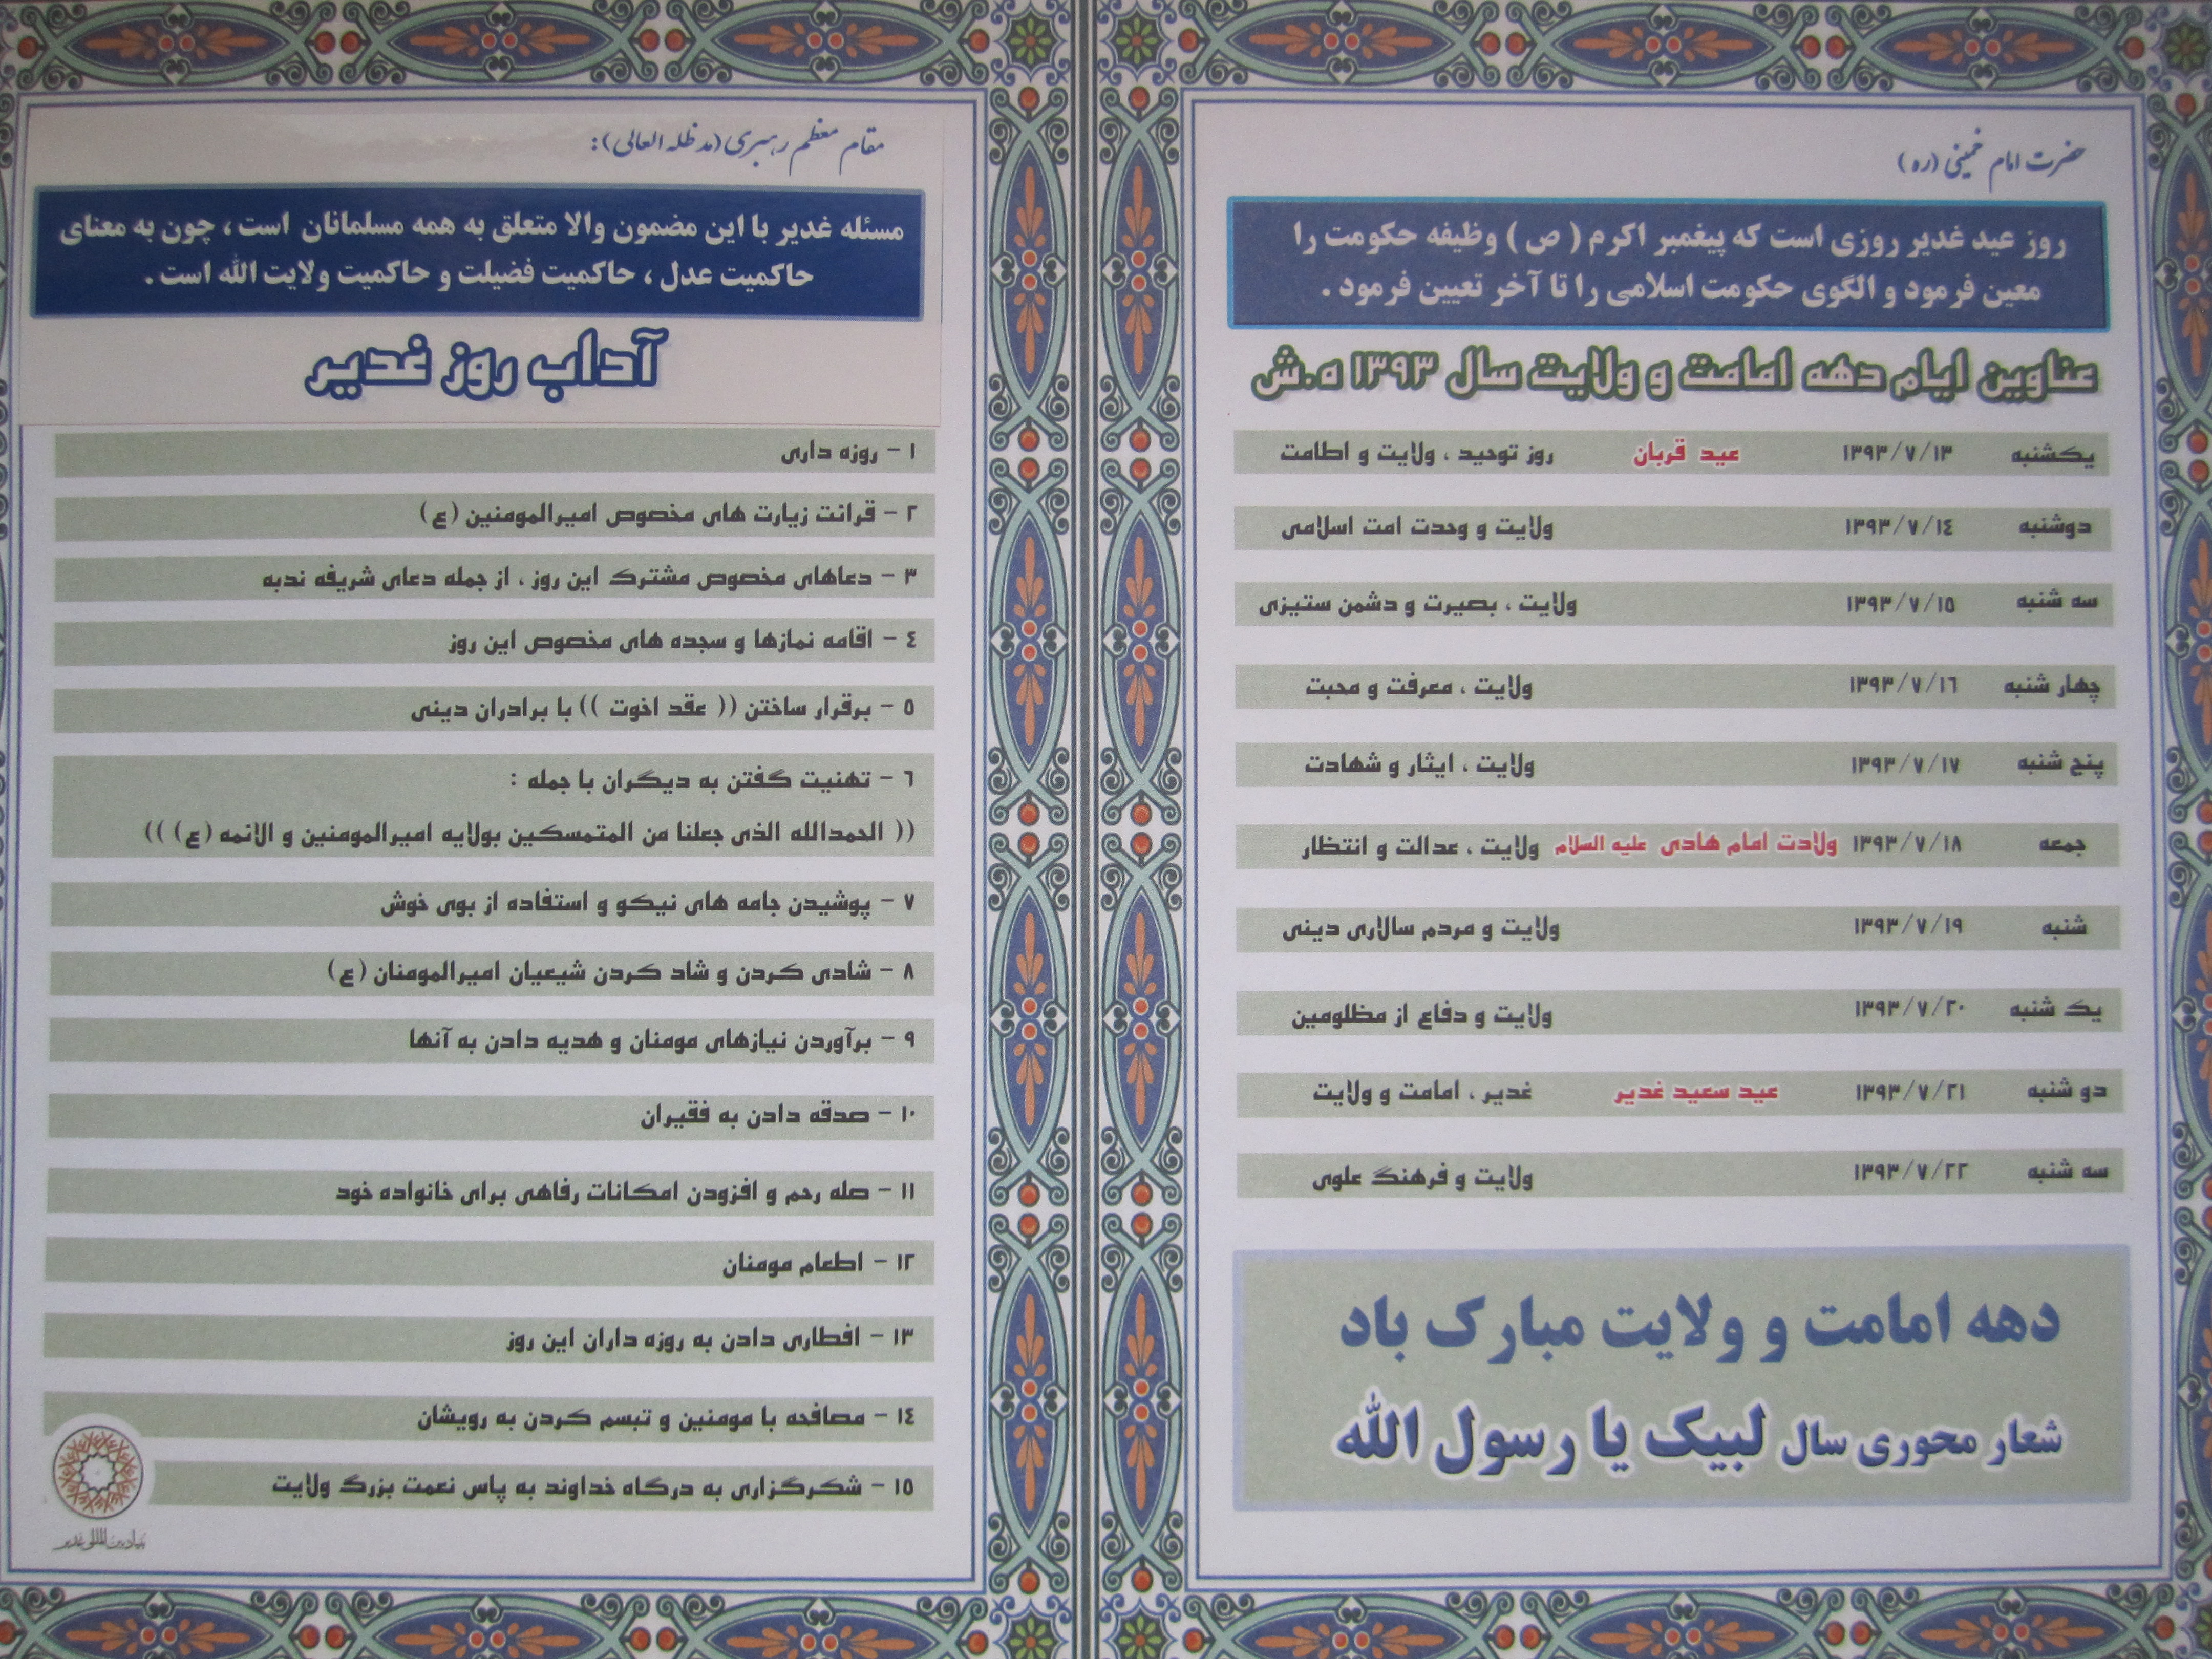 حضرت امام خمینی (ره)
روز عید غدیر روزی است که پیغمبر اکرم ( ص ) وظیفه حکومت را
معین فرمود و الگوی حکومت اسلامی را تا آخر تعیین فرمود .
عناوین ایام دهه امامت و ولایت سال ۱۳۹۳ ه.ش
یکشنبه ۱۳۹۳/۷/۱۳ عید قربان روز توحید ، ولایت و اطامت
دوشنبه ۱۳۹۳/۷/۱٤ ولایت و وحدت امت اسلامی
سه شنبه ۱۳۹۳/۷/۱۵ ولایت ، بصیرت و دشمن ستیزی
چهار شنبه ۱۳۹۳/۷/۱٦ ولایت ، معرفت و محبت
پنج شنبه ۱۳۹۳/۷/۱۷ ولایت ، ایثار و شهادت
جمعه ۱۳۹۳/۷/۱۸ ولادت امام هادی علیه السلام ولایت ، عدالت و انتظار
شنبه ۱۳۹۳/۷/۱۹ ولایت و مردم سالاری دینی
یک شنبه ۱۳۹۳/۷/۲۰ ولایت و دفاع از مظلومین
دو شنبه ۱۳۹۳/۷/۲۱ عید سعید غدیر غدیر ، امامت و ولایت
سه شنبه ۱۳۹۳/۷/۲۲ ولایت و فرهنگ علوی
دهه امامت و ولایت مبارک باد
شعار محوری سال لبیک یا رسول الله
مقام معظم رهبری (مد ظله العالی):
مسئله غدیر با این مضمون والا متعلق به همه مسلمانان است ، چون به معنای
حاکمیت عدل ، حاکمیت فضیلت و حاکمیت ولایت الله است .
آداب روز غدیر
۱ - روزه داری
۲ - قرائت زیارت های مخصوص امیرالمومنین (ع)
۳ - دعاهای مخصوص مشترک این روز ، از جمله دعای شریفه ندبه
٤ - اقامه نمازها و سجده های مخصوص این روز
۵ - برقرار ساختن (( عقد اخوت )) با برادران دینی
٦ - تهنیت گفتن به دیگران با جمله :
(( الحمدالله الذی جعلنا من المتمسکین بولایه امیرالمومنین و الائمه (ع) ))
۷ - پوشیدن جامه های نیکو و استفاده از بوی خوش
۸ - شادی کردن و شاد کردن شیعیان امیرالمومنان (ع)
۹ - برآوردن نیازهای مومنان و هدیه دادن به آنها
۱۰ - صدقه دادن به فقیران
۱۱ - صله رحم و افزودن امکانات رفاهی برای خانواده خود
۱۲ - اطعام مومنان
۱۳ - افطاری دادن به روزه داران این روز
۱٤ - مصافحه با مومنین و تبسم کردن به رویشان
۱۵ - شکرگزاری به درگاه خداوند به پاس نعمت بزرگ ولایت
بنیاد بین المللی غدیر